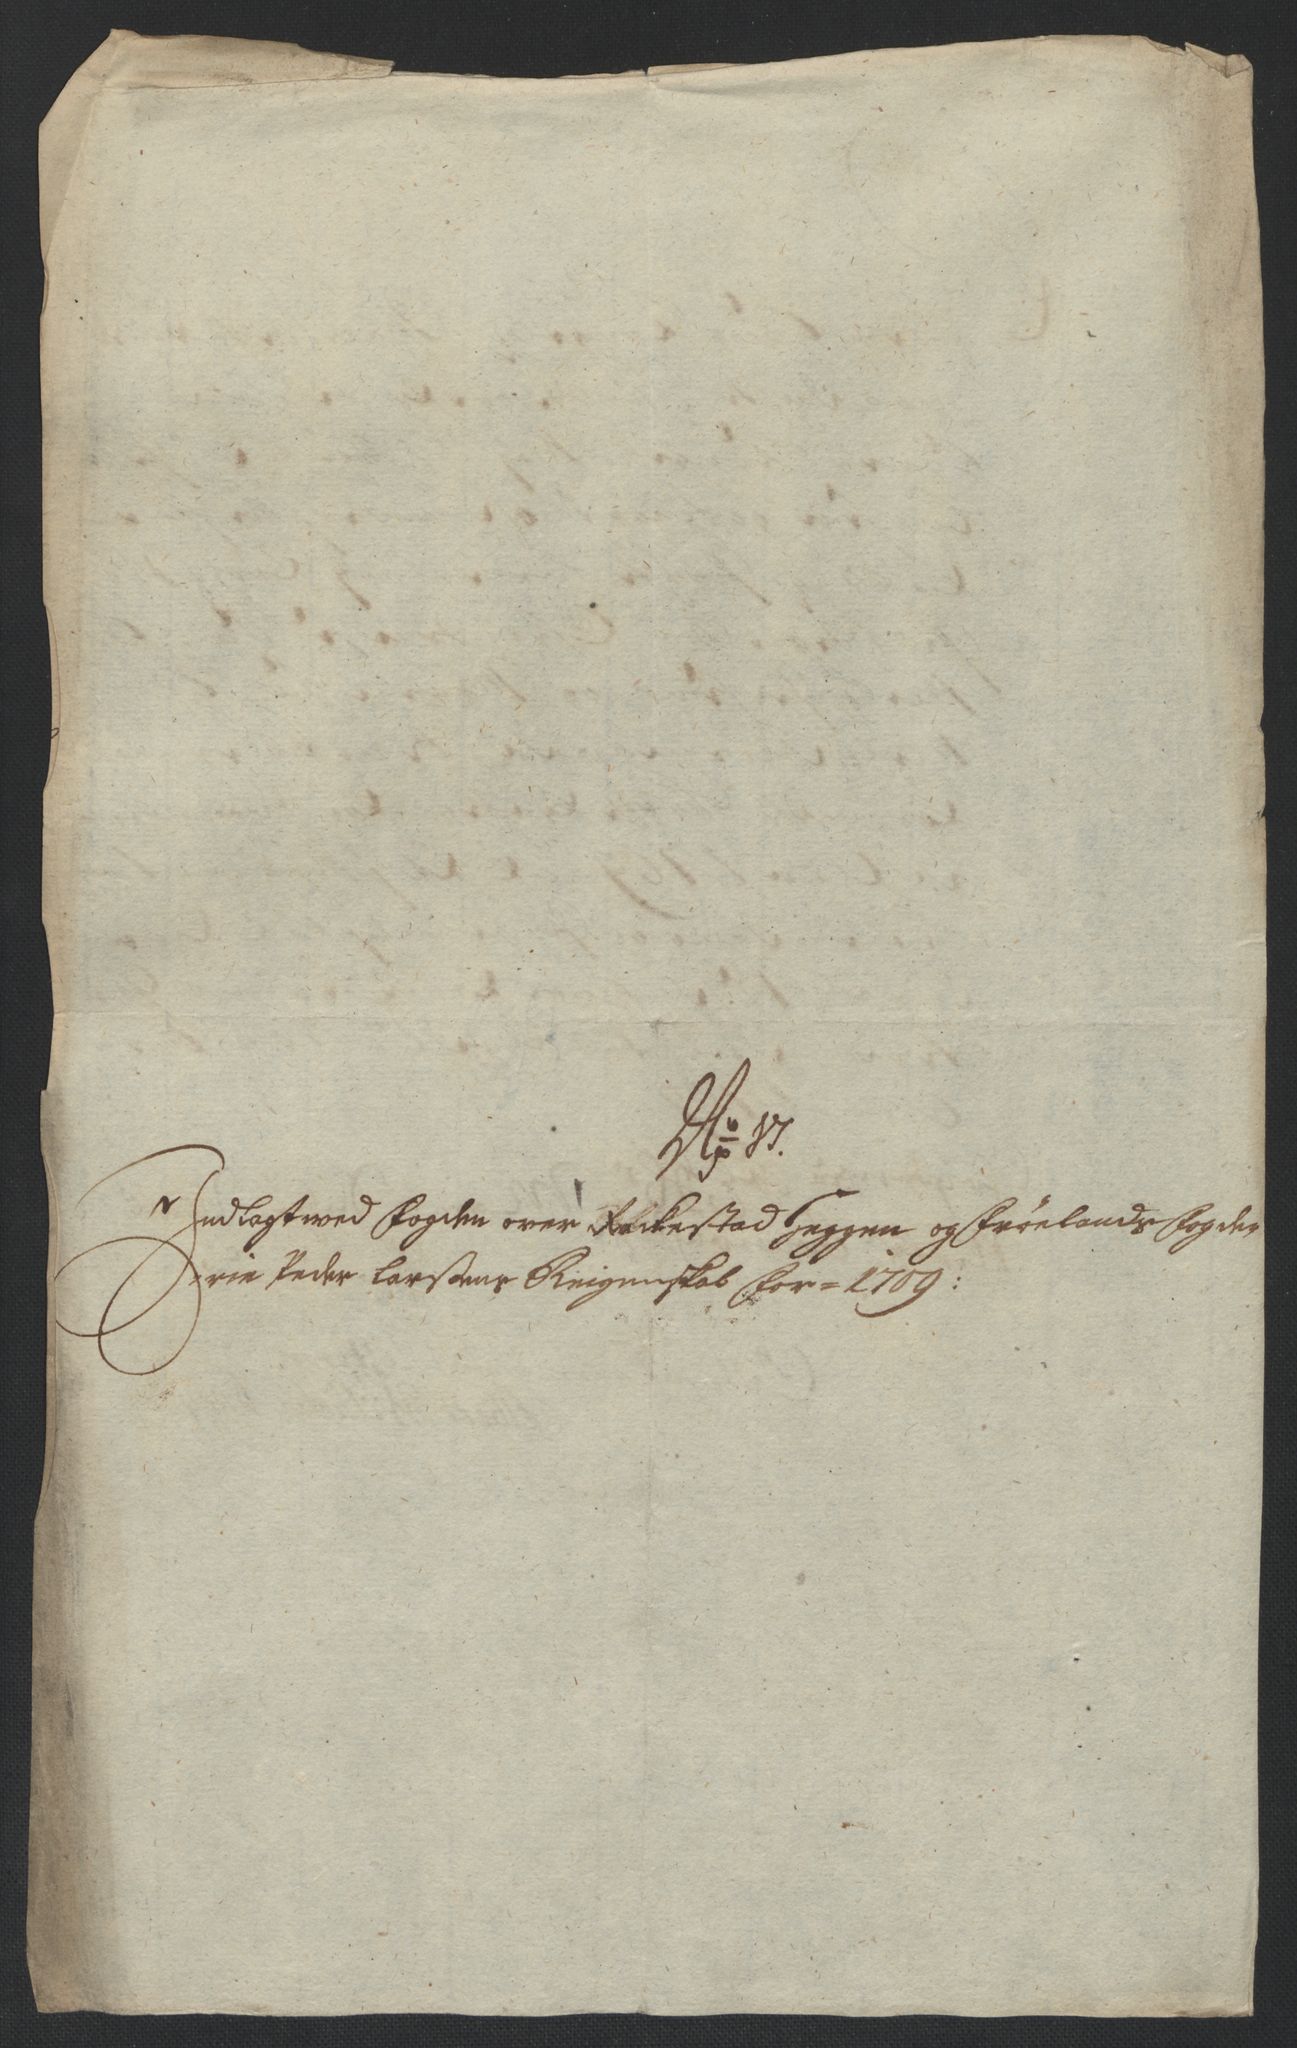 No 17.
Indlagt wed Fogden over Rackestad Heggen og Frøelands Fogder
rie Peder Larsens Reigenskab for = 1709: